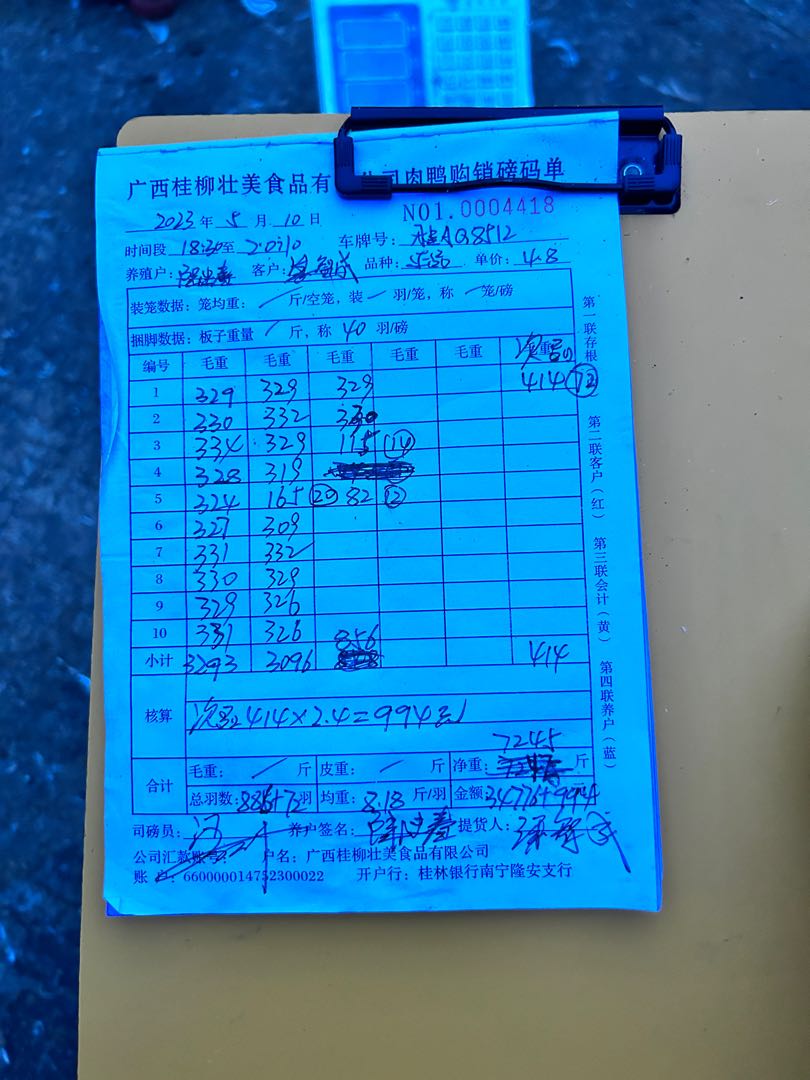 广西桂柳壮美食品有 公司肉鸭购销磅码单
2023 年 5 月 10 日 NO1.0004418
时间段 18:30至 20:10 车牌号: 桂AQ8512
养殖户: 客户: 品种: 单价: 4.8
装笼数据: 笼均重: / 斤/空笼, 装 / 羽/笼, 称 / 笼/磅
捆脚数据: 板子重量 / 斤, 称 40 羽/磅
编号 毛重 毛重 毛重 毛重 毛重
1 329 329 329 414 72
2 330 332 330
3 334 329 115 14
4 328 319
5 324 165 20 82 12
6 327 309
7 331 332
8 330 329
9 329 326
10 331 326
小计 3293 3096 856 414
核算 414×2.4=994元
7245
合计 毛重: / 斤 皮重: / 斤 净重: 斤
总羽数: 886+72羽 均重: 8.18 斤/羽 金额: 34776+994
司磅员: 养户签名: 提货人:
公司汇款账号: 户名: 广西桂柳壮美食品有限公司
账 户: 660000014752300022 开户行: 桂林银行南宁隆安支行
第一联存根
第二联客户(红)
第三联会计(黄)
第四联养户(蓝)